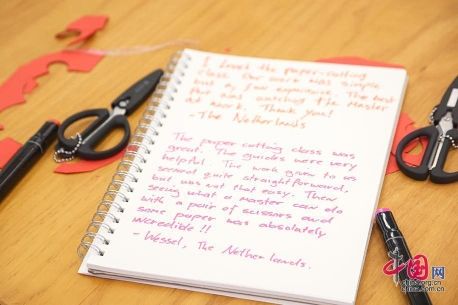 I loved the paper-cutting
class. Our work was simple
but
The best
Part was watching the Master
at work. Thank you!
- The Netherlands
The paper cutting class was
great. The guides were very
helpful. The work given to us
seemed quite straightforward,
but was not that easy. Then
seeing what a master can do
with a pair of scissors and
some paper was absolutely
incredible!!
- Wessel, The Netherlands.
中国网
china.org.cn
china.com.cn